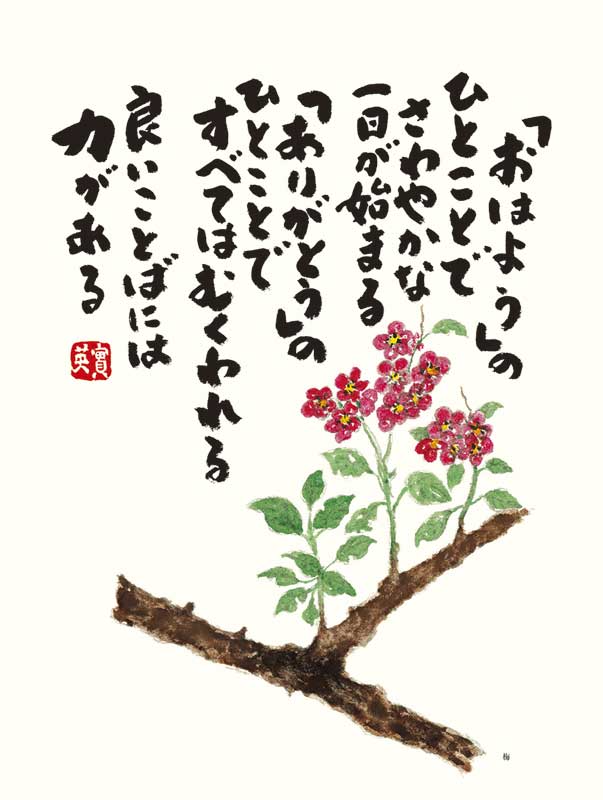 「おはよう」の
ひとことで
さわやかな
一日が始まる
「ありがとう」の
ひとことで
すべてはむくわれる
良いことばには
力がある
實英
梅